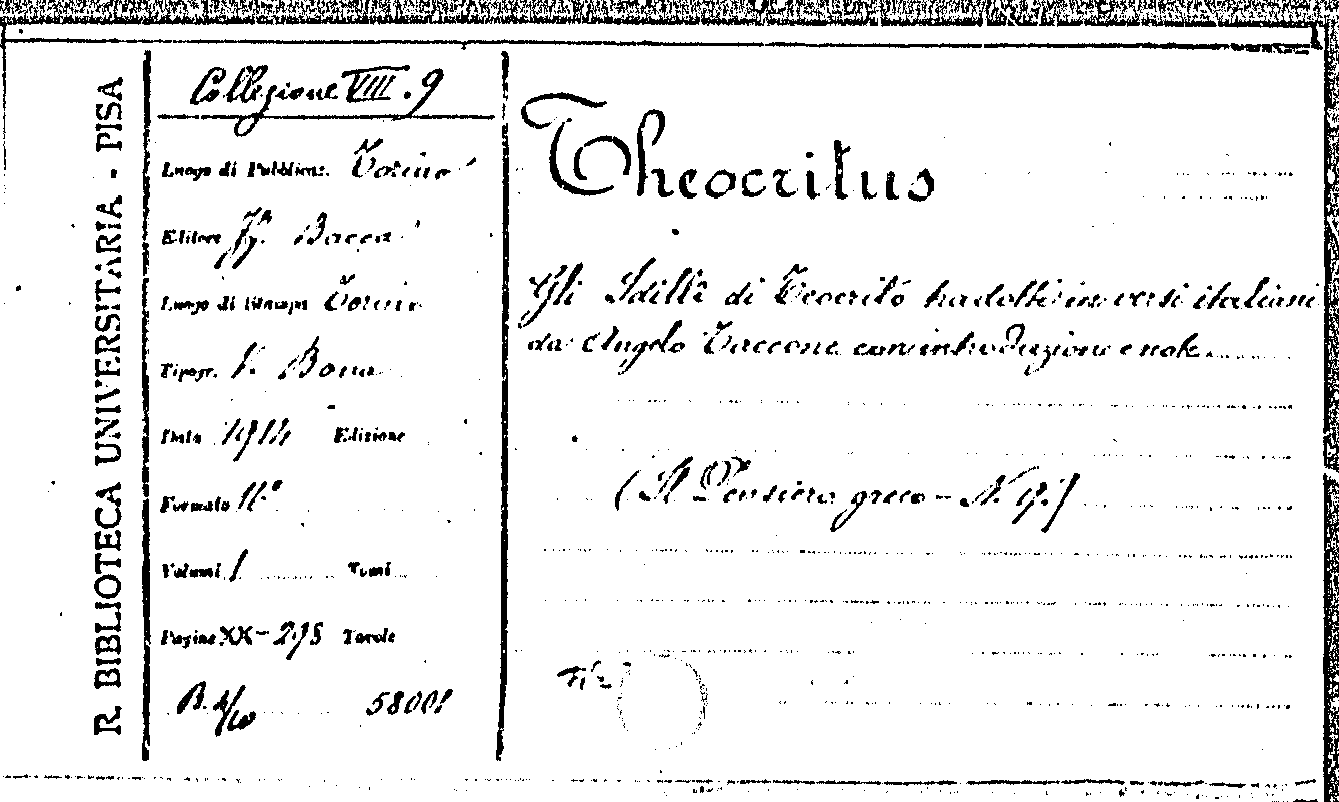 R. BIBLIOTECA UNIVERSITARIA - PISA
Collezione VIII. 9
Luogo di Pubblicaz. Torino
Editore Ff. Bocca
Luogo di Stampa Torino
Tipogr. V. Bona
Data 1914 Edizione
Formato
Volumi 1 Tomi
Pagine XX-295 Tavole
58001
Theocritus
Gli Idilli di Teocrito tradotti in versi italiani
da Angelo Taccone con introduzione e note.
(Il Pensiero greco - N. 9.)